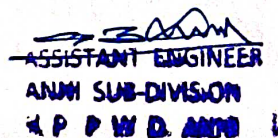 ASSISTANT ENGINEER
ANINI SUB-DIVISION
A P P W D